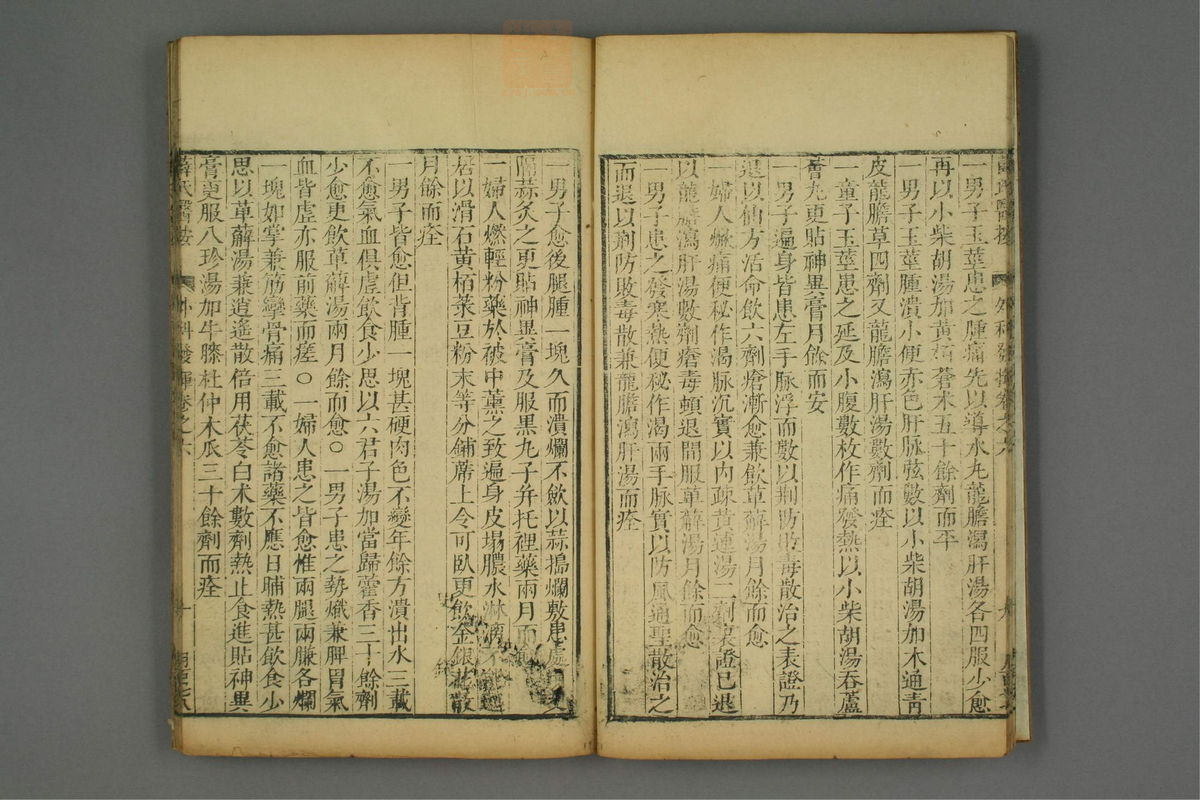 一男子玉莖患之腫痛先以導水丸龍膽瀉肝湯各四服少愈
再以小柴胡湯加黃栢蒼朮五十餘劑而平
一男子玉莖腫潰小便赤色肝脉弦數以小柴胡湯加木通青
皮龍膽草四劑又龍膽瀉肝湯數劑而痊
一童子玉莖患之延及小腹數枚作痛發熱以小柴胡湯吞蘆
薈丸更貼神異膏月餘而安
一男子遍身皆患左手脉浮而數以荆防敗毒散治之表證乃
退以仙方活命飲六劑瘡漸愈兼飲萆薢湯月餘而愈
一婦人焮痛便秘作渴脉沉實以内疎黃連湯二劑裏證已退
以龍膽瀉肝湯數劑瘡毒頓退間服萆薢湯月餘而愈
一男子患之發寒熱便秘作渴兩手脉實以防風通聖散治之
而退以荆防敗毒散兼龍膽瀉肝湯而痊
一男子愈後腿腫一塊久而潰爛不歛以蒜搗爛敷患處
隔蒜灸之更貼神異膏及服黑丸子并托裡藥兩月而
一婦人燃輕粉藥於被中薰之致遍身皮塌膿水淋漓不
居以滑石黃栢菉豆粉末等分鋪蓆上令可臥更飲金銀花散
月餘而痊
一男子皆愈但背腫一塊甚硬肉色不變年餘方潰出水三載
不愈氣血俱虛飲食少思以六君子湯加當歸藿香三十餘劑
少愈更飲萆薢湯兩月餘而愈○一男子患之勢熾兼脾胃氣
血皆虛亦服前藥而瘥○一婦人患之皆愈惟兩腿兩臁各爛
一塊如掌兼筋攣骨痛三載不愈諸藥不應日晡熱甚飲食少
思以萆薢湯兼逍遙散倍用茯苓白朮數劑熱止食進貼神異
膏更服八珍湯加牛膝杜仲木瓜三十餘劑而痊
薛氏醫按 外科發揮卷之六 十